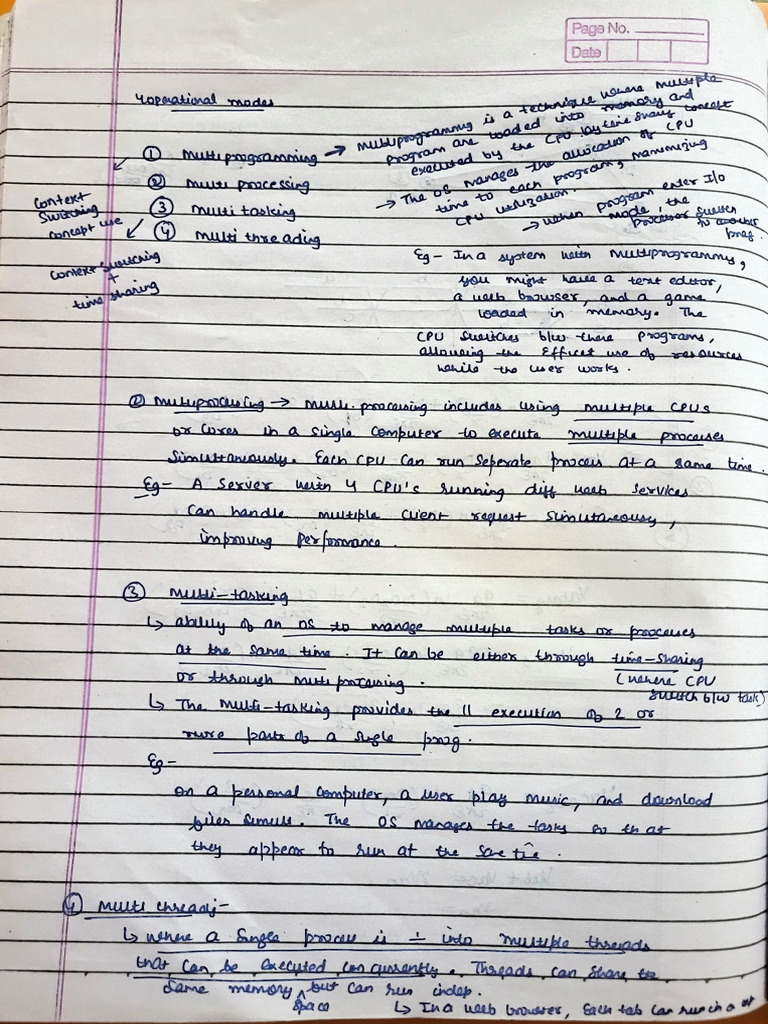 Page No.
Date
4 operational modes
① Multiprogramming → Multiprogrammig is a technique where multiple
program are loaded into memory and
executed by the CPU by time sharing concept
→ The OS manages the allocation of CPU
time to each program, maximizing
CPU utilization.
→ when program enter I/O
mode, the
processor switch
to another
prog.
② Multi processing
③ multi tasking
④ multi threading
Context
Switching
concept use
context switching
+
time sharing
Eg- In a system with multiprogrammig,
you might have a text editor,
a web browser, and a game
loaded in memory. The
CPU switches b/w these programs,
allowing the Efficet use of resources
while the user works.
② Multiprocessing → Multi. processing includes using multiple CPUs
or Cores in a single computer to execute multiple processes
simultaneously. Each CPU can run seperate process at a same time.
Eg- A Server with 4 CPU's running diff web services
can handle multiple client request simultaneousy,
improving performance.
③ Multi-tasking
↳ ability of an OS to manage multiple tasks or processes
at the same time. It can be either through time-sharing
or through multi processing. (where CPU
switch b/w task)
↳ The Multi-tasking provides the || execution of 2 or
more parts of a single prog.
Eg-
on a personal computer, a user play music, and download
files simult. The OS manages the tasks so that
they appear to run at the same
④ Multi threadj-
↳ where a single process is ÷ into multiple threads
that can be executed concurrently. Threads can share the
same memory space but can run indep.
↳ In a web browser, Each tab can run